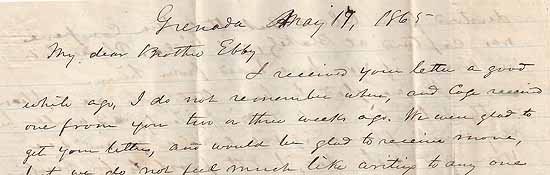 Grenada May 17, 1865
My dear Brother Ebby
I received your letter a good
while ago, I do not remember when, and Cage received
one from you two or three weeks ago. We were glad to
get your letters, and would be glad to receive more,
but we do not feel much like writing to any one